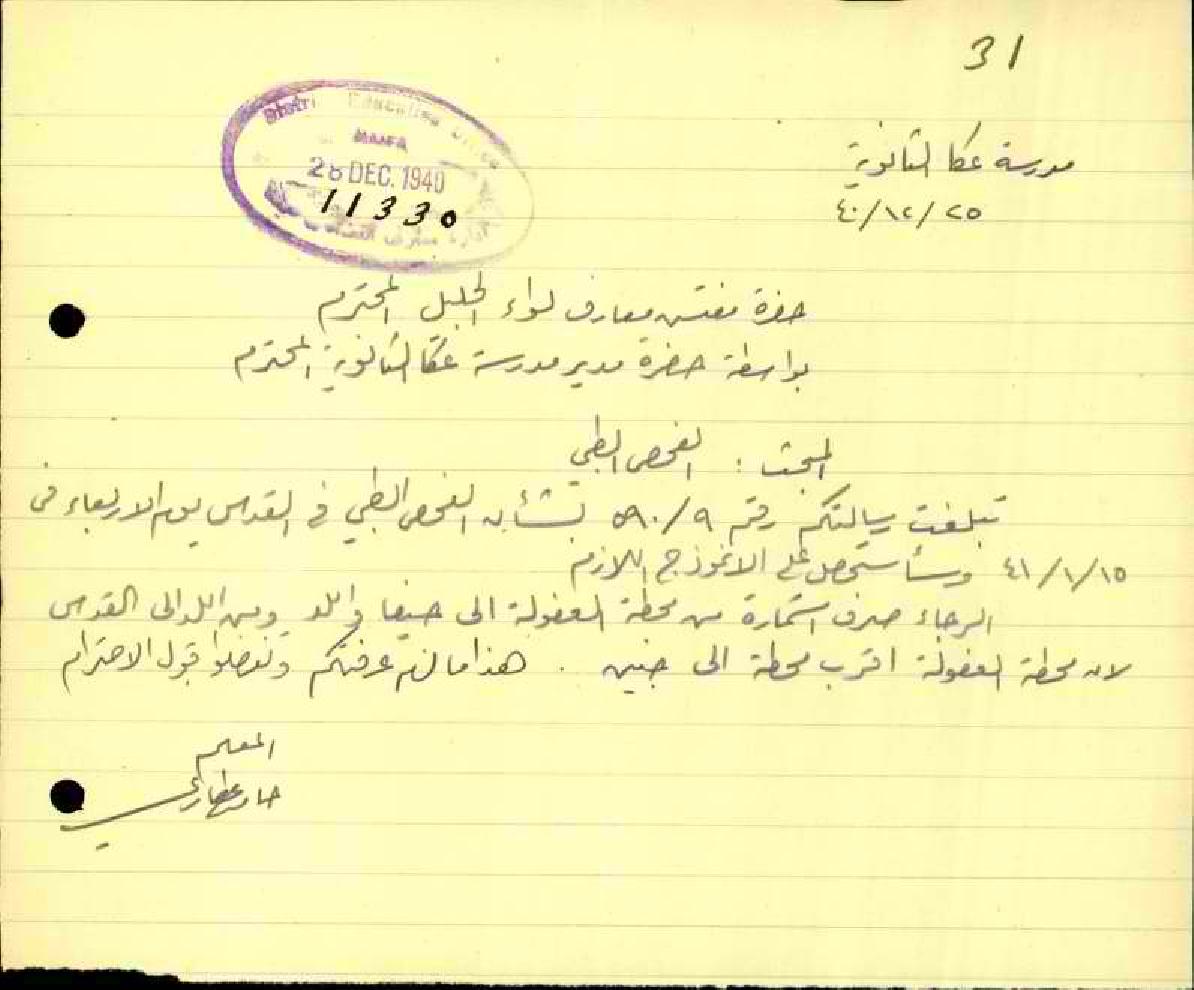 31
District Education Office
HAIFA
28 DEC. 1940
11330
مدرسة عكا الثانوية
٤٠/١٢/٢٥
حضرة مفتش معارف لواء الجليل المحترم
بواسطة حضرة مدير مدرسة عكا الثانوية المحترم
المبحث : الفحص الطبي
تبلغت رسالتكم رقم ٥٩٠/٩ بشأن الفحص الطبي في القدس يوم الاربعاء في
٤١/١/١٥ وسأستحصل على الانموذج اللازم
الرجاء صرف استمارة من محطة العفولة الى حيفا واللد ومن اللد الى القدس
لان محطة العفولة اقرب محطة الى جنين . هذا ما لزم عرفتكم وتفضلوا قبول الاحترام
المعلم